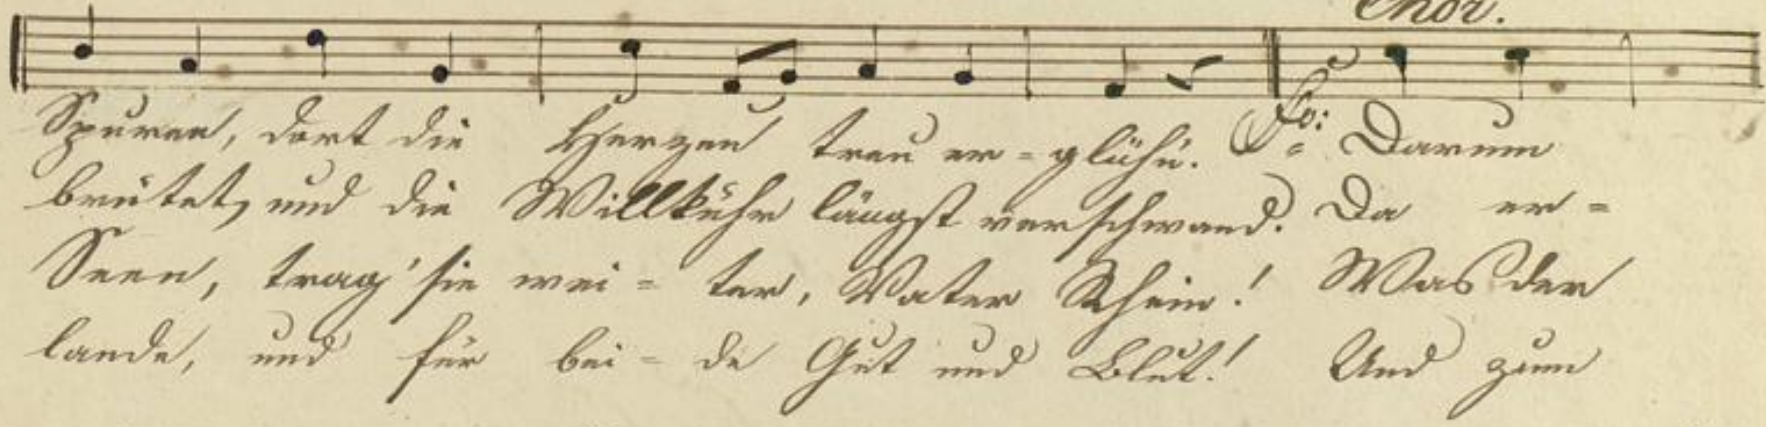 Chor.
Spuren, dort die Herzen treu er=glühn. Fo: Darum
brütet, und die Willkühr längst verschwand. Da er=
Seen, trag' sie wei= ter, Vater Rhein! Was der
lande, und für bei= de Gut und Blut! Und zum